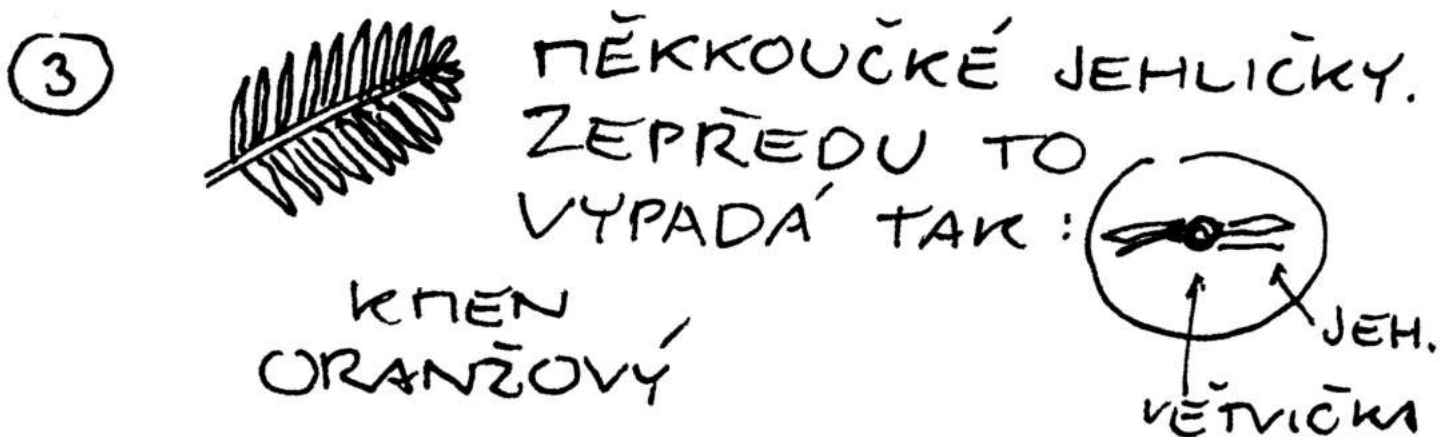 3
MĚKKOUČKÉ JEHLIČKY.
ZEPŘEDU TO
VYPADÁ TAK:
KMEN
ORANŽOVÝ
JEH.
VĚTVIČKA